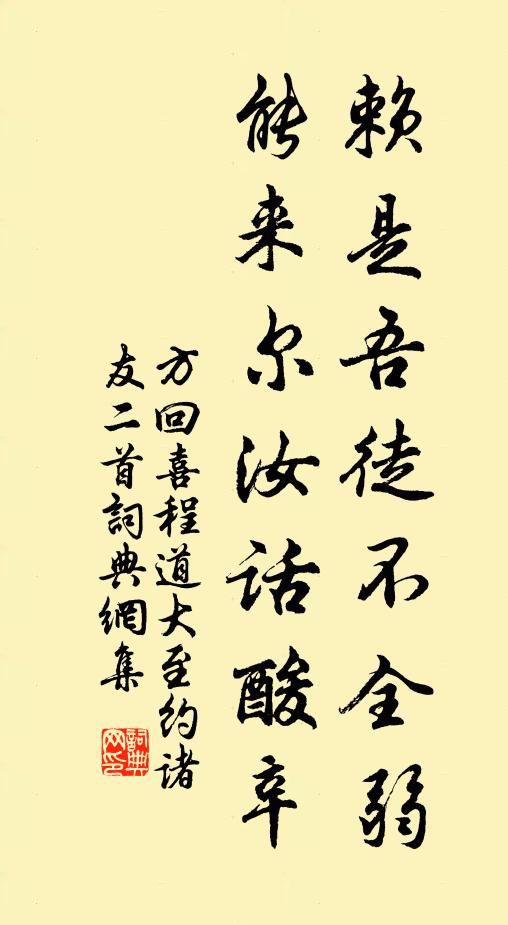 赖是吾徒不全弱
能来尔汝话酸辛
方回喜程道大至约诸
友二首詞典網集
詞典
网印